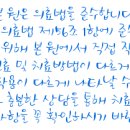 본 원은 의료법을 준수합니다
의료법 제56조 1항에 준
위해 본 원에서 직접 작
료 및 치료방법이 다르게
용이 다르게 나타날 수
충분한 상담을 통해 치료
항을 꼭 확인하시기 바